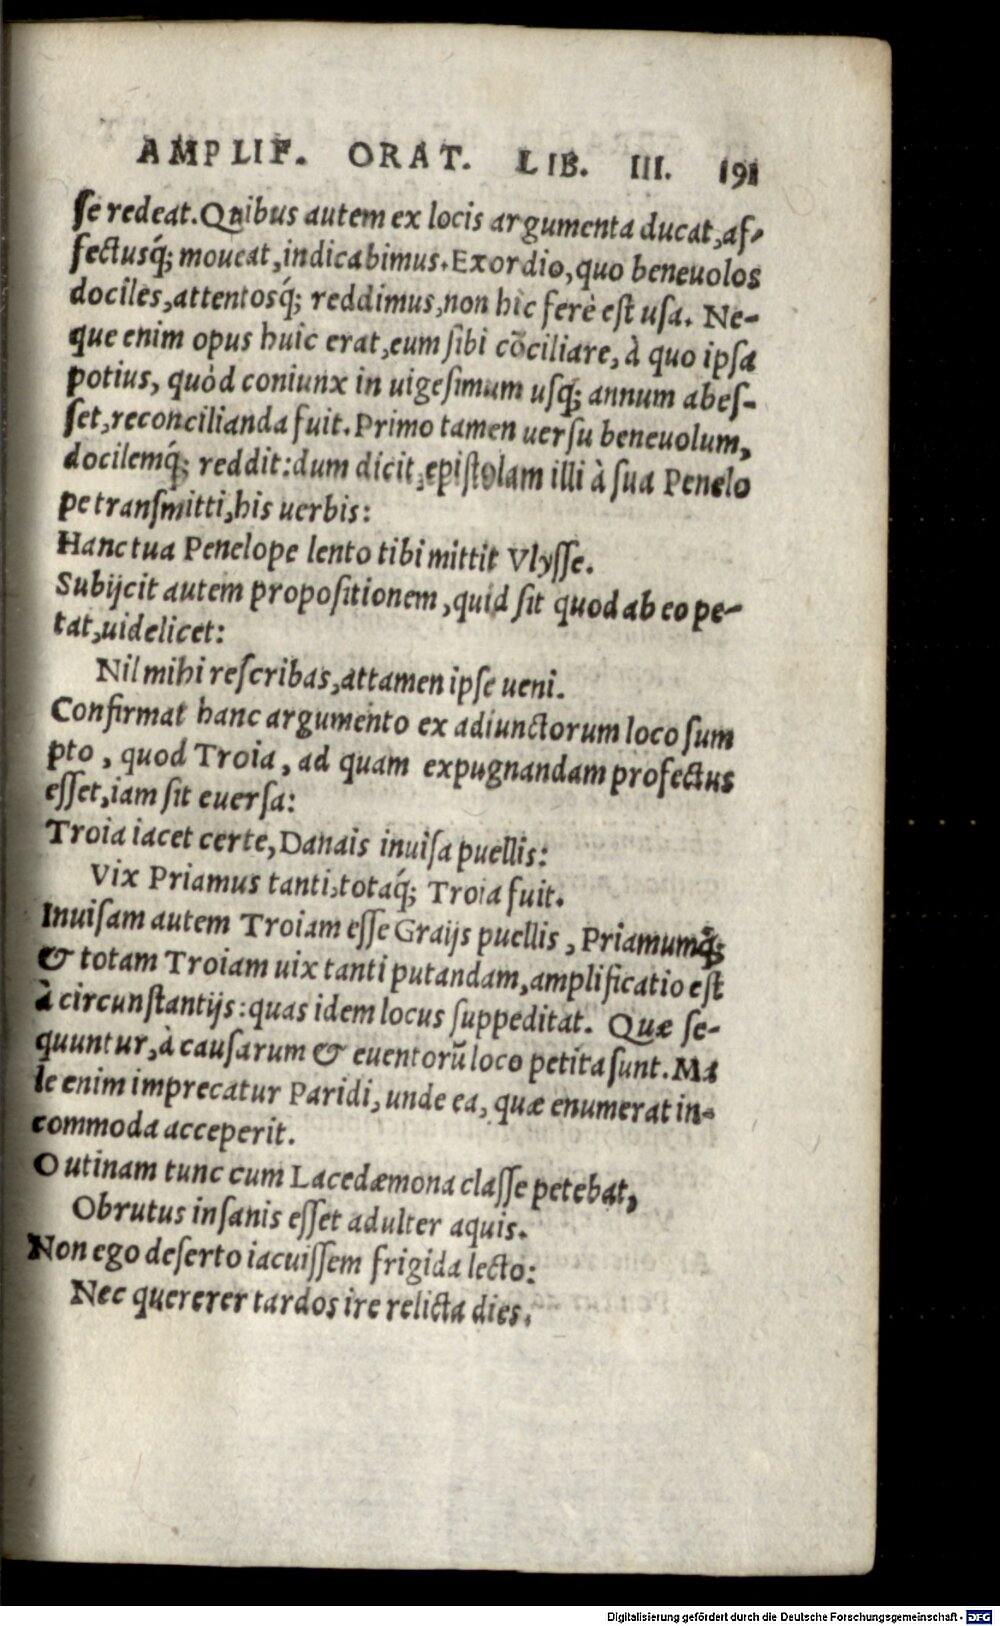 AMPLIF. ORAT. LIB. III. 191
ſe redeat. Quibus autem ex locis argumenta ducat, af-
fectusq́; moueat, indicabimus. Exordio, quo beneuolos
dociles, attentosq́; reddimus, non hic ferè eſt uſa. Ne-
que enim opus huic erat, eum ſibi cōciliare, à quo ipſa
potius, quòd coniunx in uigeſimum uſq; annum abeſ-
ſet, reconcilianda fuit. Primo tamen uerſu beneuolum,
docilemq́; reddit: dum dicit, epiſtolam illi à ſua Penelo
pe tranſmitti, his uerbis:
Hanc tua Penelope lento tibi mittit Vlyſſe.
Subijcit autem propoſitionem, quid ſit quod ab eo pe-
tat, uidelicet:
Nil mihi reſcribas, attamen ipſe ueni.
Confirmat hanc argumento ex adiunctorum loco ſum
pto, quod Troia, ad quam expugnandam profectus
eſſet, iam ſit euerſa:
Troia iacet certe, Danais inuiſa puellis:
Vix Priamus tanti, totaq́; Troia fuit.
Inuiſam autem Troiam eſſe Graijs puellis, Priamumq́;
& totam Troiam uix tanti putandam, amplificatio eſt
à circunſtantijs: quas idem locus ſuppeditat. Quæ ſe-
quuntur, à cauſarum & euentorū loco petita ſunt. Ma
le enim imprecatur Paridi, unde ea, quæ enumerat in-
commoda acceperit.
O utinam tunc cum Lacedæmona claſſe petebat,
Obrutus inſanis eſſet adulter aquis.
Non ego deſerto iacuiſſem frigida lecto:
Nec quererer tardos ire relicta dies.
Digitalisierung gefördert durch die Deutsche Forschungsgemeinschaft - DFG